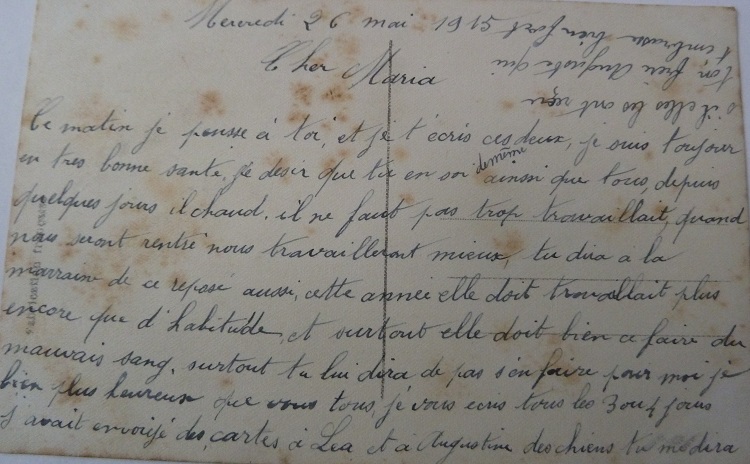 Mercredi 26 mai 1915
Cher Maria
Ce matin je pensse à toi, et je t'écris ces deux, je suis toujour
en tres bonne santé, Je desir que tu en soi de même ainssi que tous, depuis
quelques jours il chaud, il ne faut pas trop travaillait, quand
nous seront rentré nous travailleront mieux, tu dira à la
marraine de ce reposé aussi, cette année elle doit travallait plus
encore que d'habitudde, et surtout elle doit bien ce faire du
mauvais sang, surtout tu lui dira de pas s'en faire pour moi je
bien plus heureux que vous tous, je vous ecris tous les 3 ou 4 jours
j'avait envoijé des cartes à Lea et à Augustine des chiens tu me dira
si elles les ont reçu
ton frere Auguste qui
t'embrasse bien fort